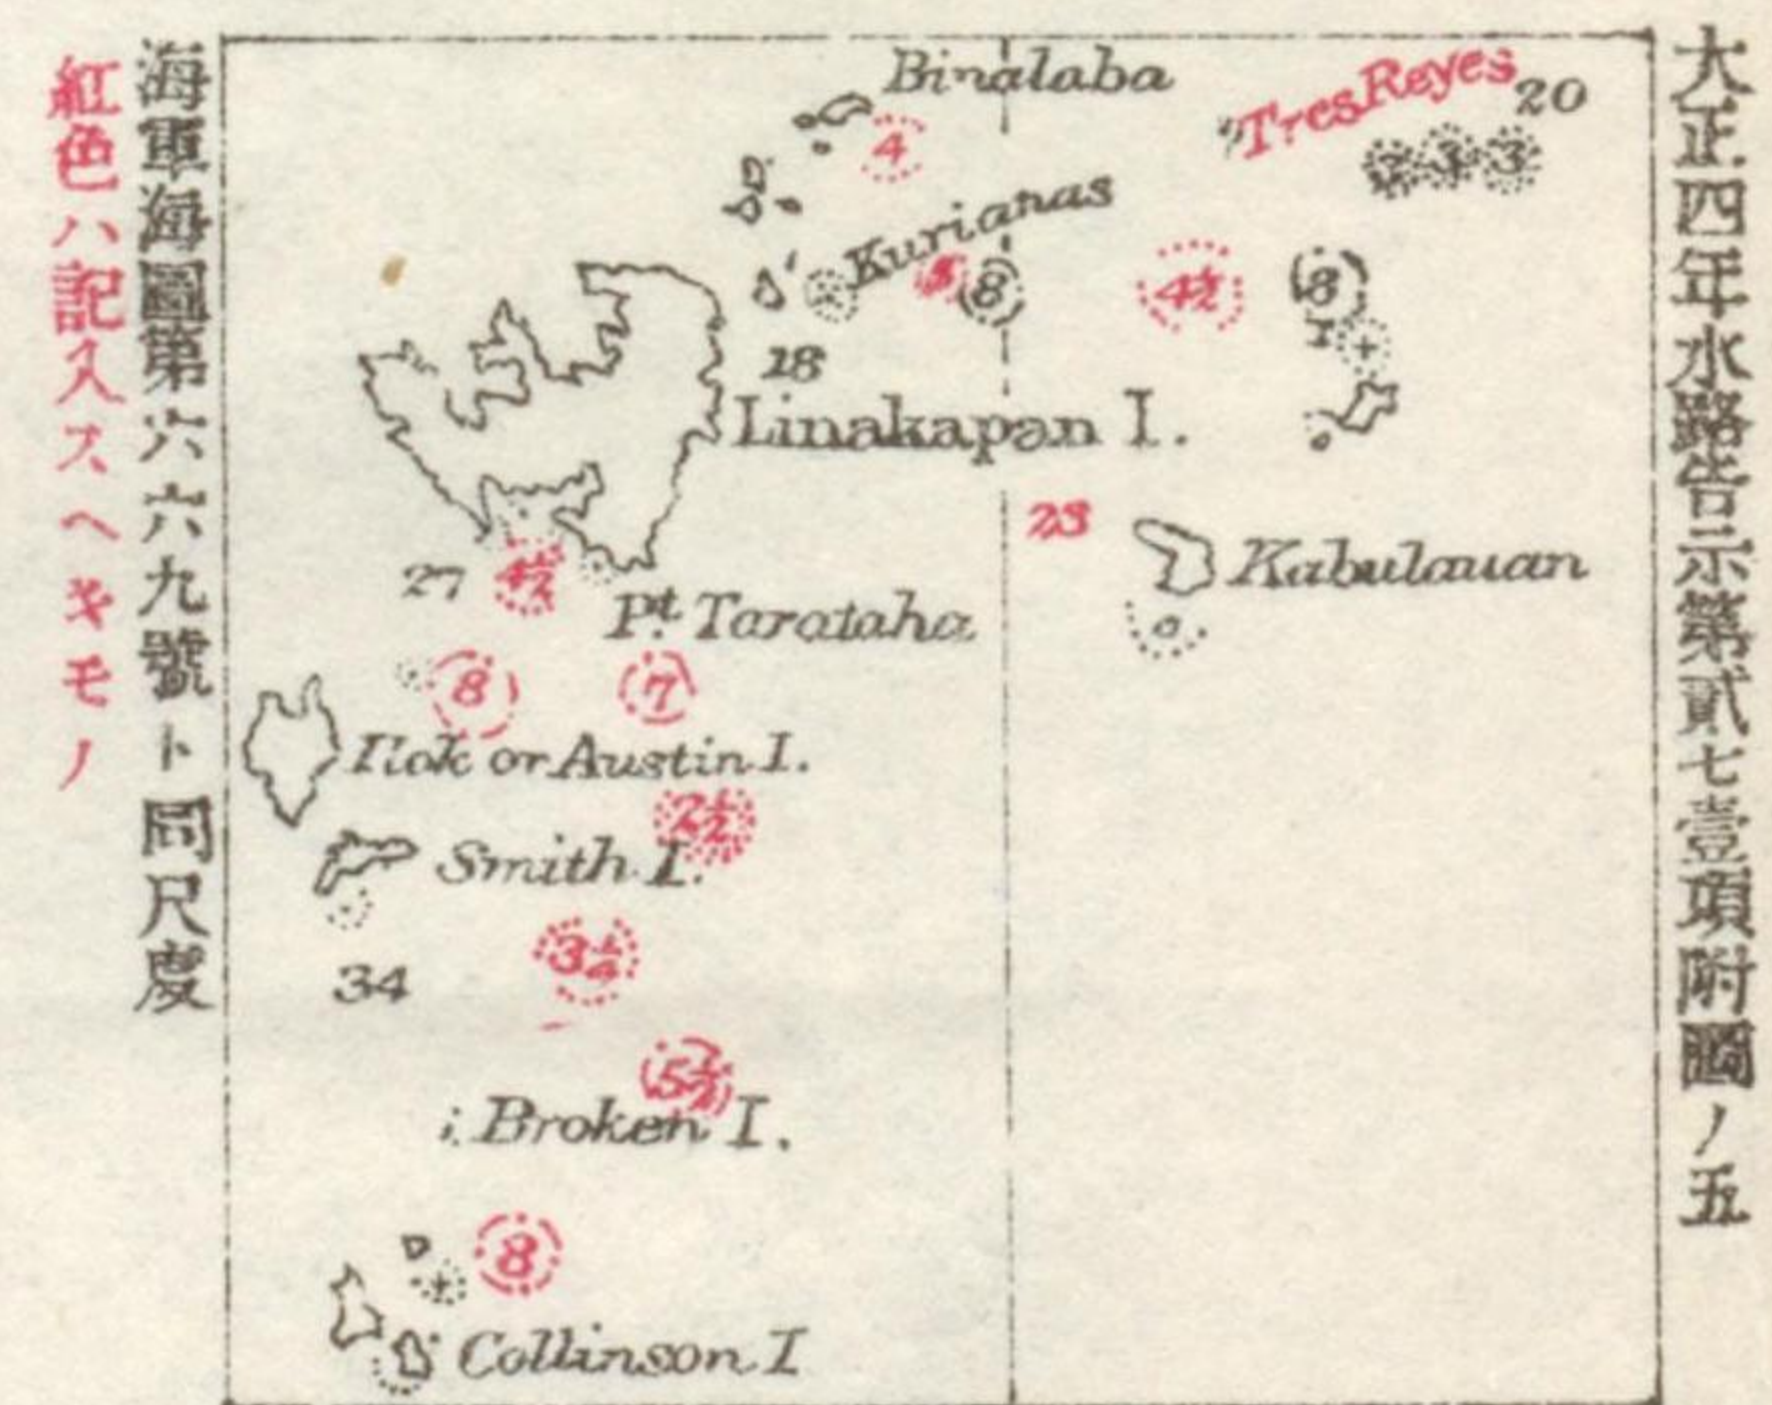 大正四年水路告示第貳七壹項附圖ノ五
Binalaba
Tres Reyes
20
4
2 3 3
Kurianas
8
4½
8
18
Linakapan I.
23
Kabulauan
27
4½
Pt. Tarataha
8
7
Ilok or Austin I.
2½
Smith I.
34
5½
Broken I.
8
Collinson I
海軍海圖第六六九號ト同尺度
紅色ハ記入スヘキモノ